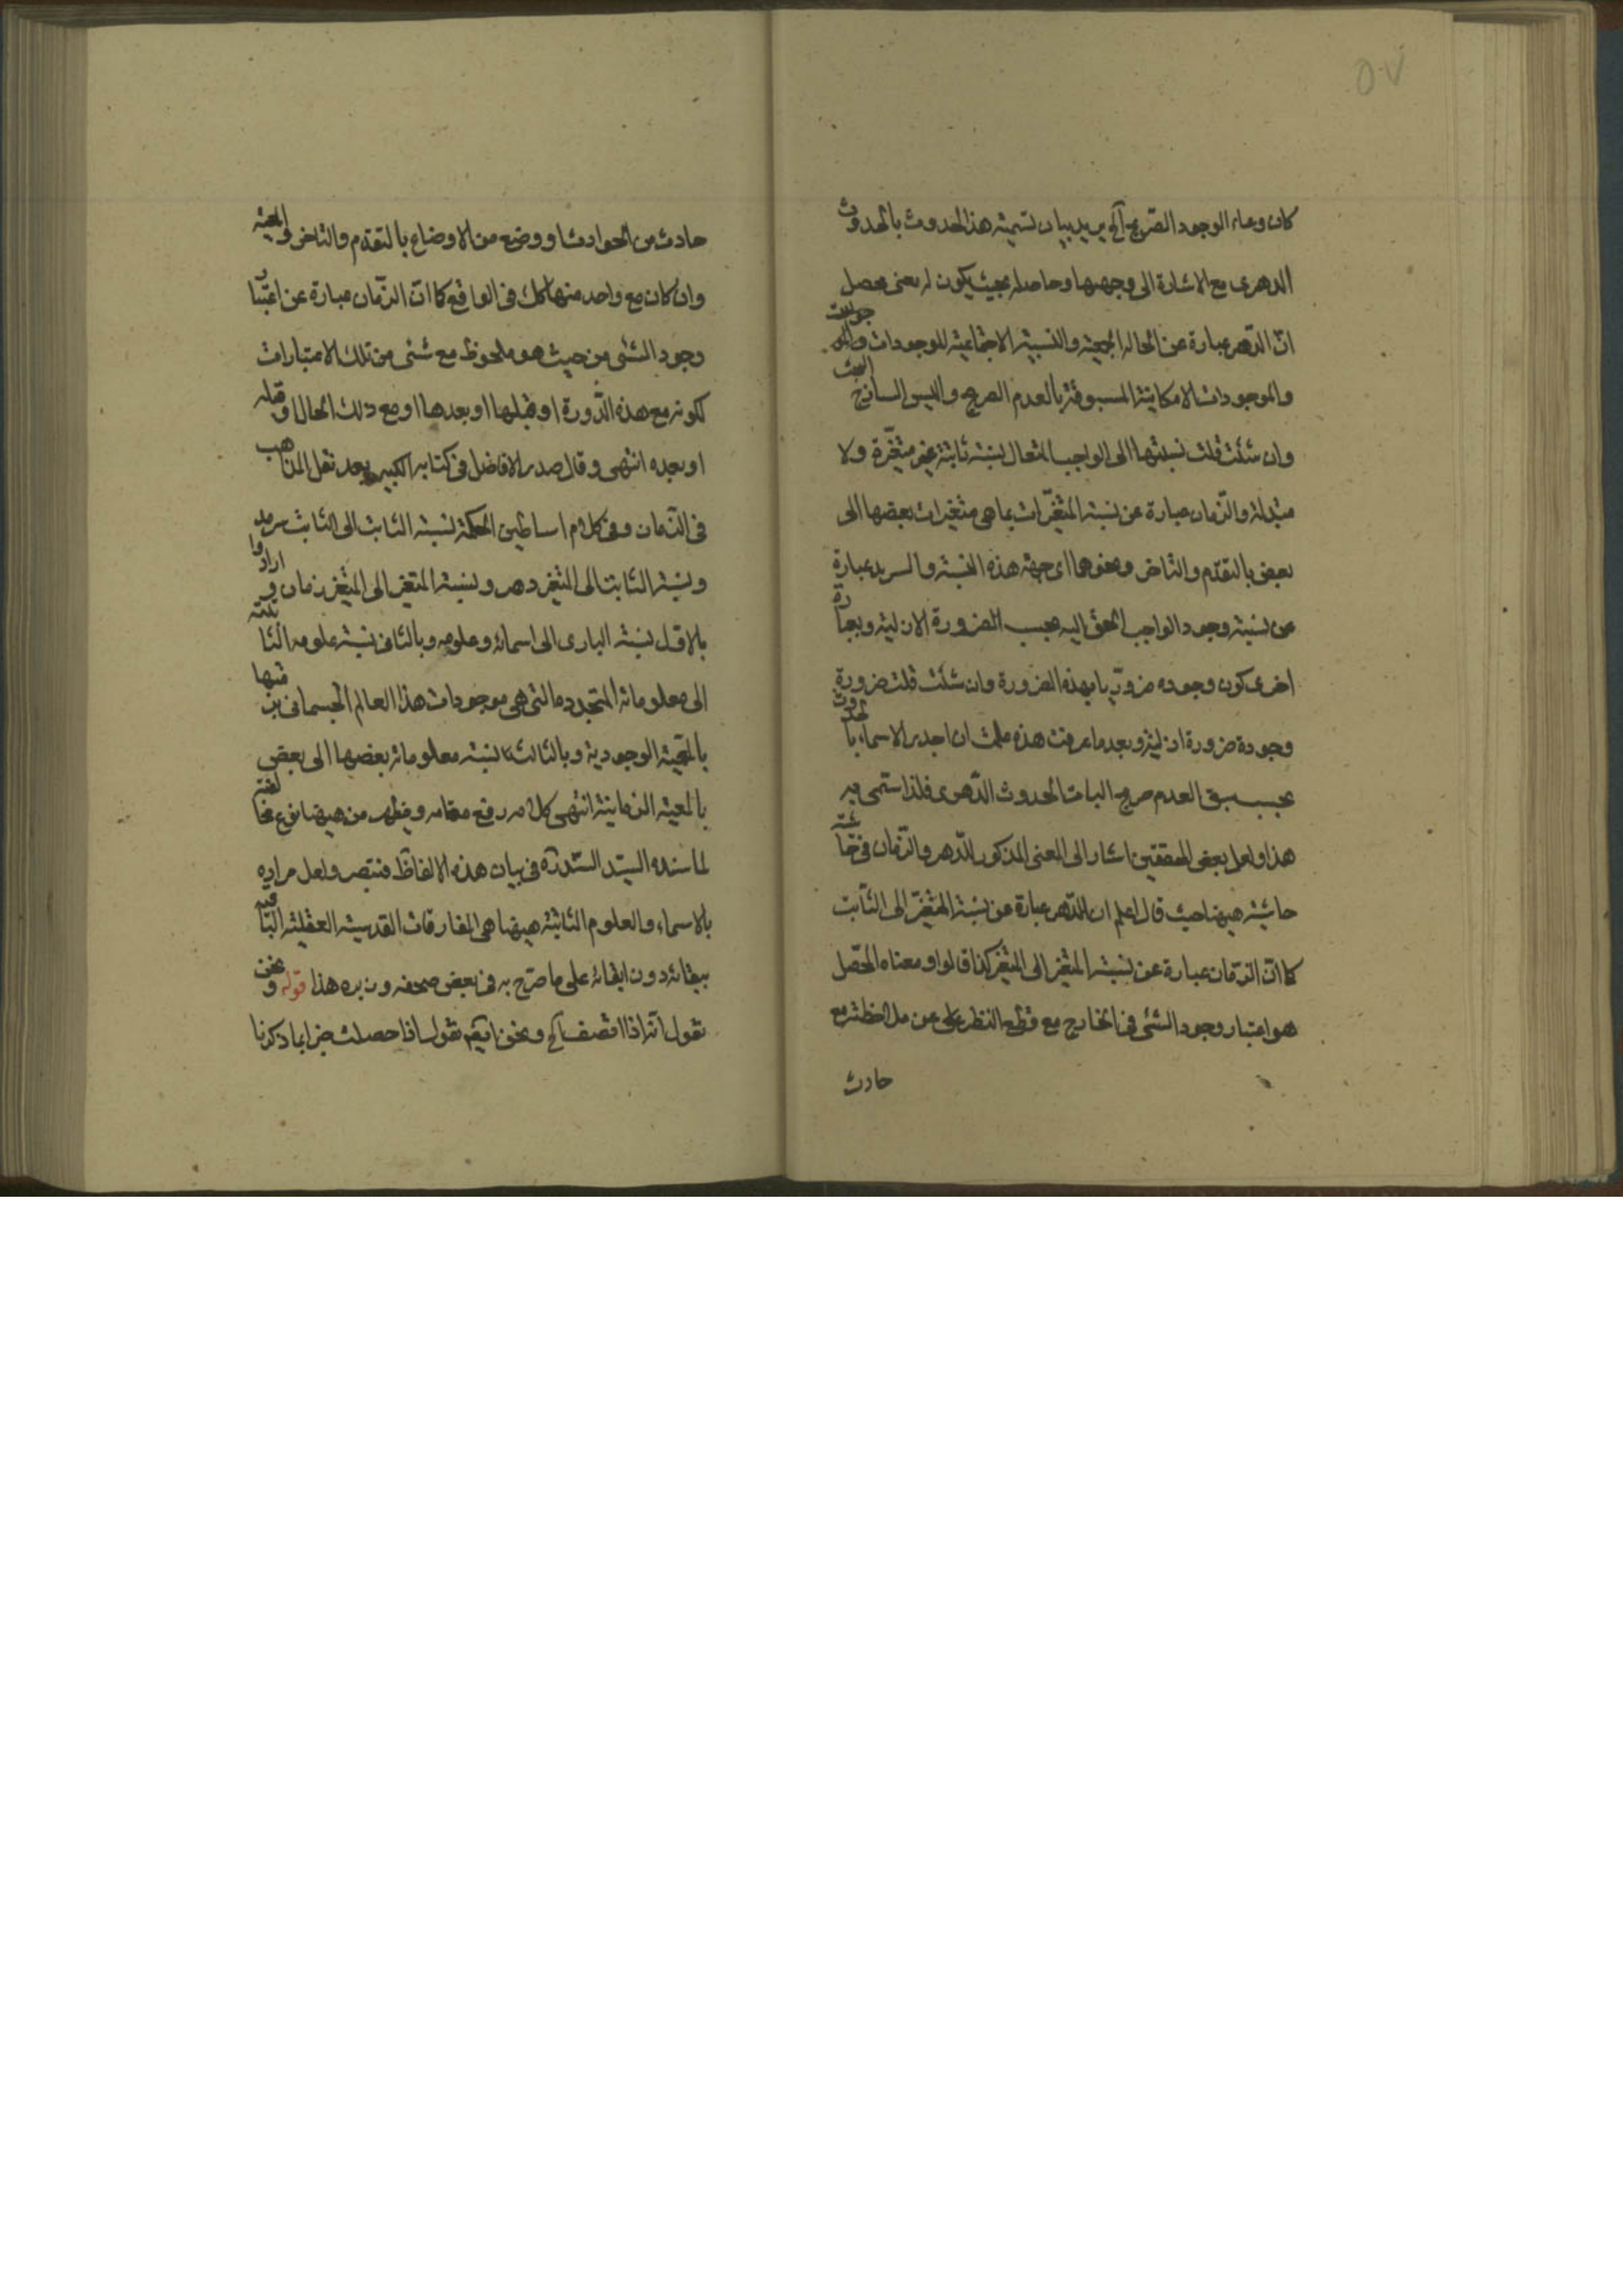 ٥٠٧
كان وعاء الوجود الصريح آلخ يريد بيان تسمية هذا الحدوث بالحدوث
الدهرى مع الاشارة الى وجهها وحاصله بحيث يكون له معنى محصل
انّ الدّهر عبارة عن الحالة الجمعية والنسبة الاجتماعية للموجودات
والموجودات الامكانية المسبوقة بالعدم الصريح والليس الساذج البحت
وان شئت قلت نسبتها الى الواجب المتعال نسبة ثابتة غير متغيّرة ولا
متبدلة والزّمان عبارة عن نسبة المتغيّرات بما هى متغيرات بعضها الى
بعض بالتقدّم والتاخر ونحوهما اى جهة هذه النسبة والسرمد عبارة
عن نسبة وجود الواجب الحق اليه بحسب الضرورة الازلية وبعبارة
اخرى كون وجوده ضروريّا بهذه الضرورة وان شئت قلت ضرورة
وجوده ضرورة ازلية وبعد ما عرفت هذه علمت ان اجدر الاسماء بالحدوث
بحسب سبق العدم صريح البات الحدوث الدّهرى فلذا سمّى به
هذا ولعل بعض المحققين اشار الى المعنى المذكور للدّهر والزّمان فى
حاشية هيهنا حيث قال اعلم ان الدّهر عبارة عن نسبة المتغيّر الى الثّابت
كما انّ الزّمان عبارة عن نسبة المتغير الى المتغير كذا قالوا ومعناه المحصّل
هو اعتبار وجود الشئ فى الخارج مع قطع النظر عن ملاحظته مع
حادث
حادث من الحوادث او وضع من الاوضاع بالتقدّم والتاخر والمعية
وان كان مع واحد منها كك فى الواقع كما انّ الزّمان عبارة عن اعتبار
وجود الشئ من حيث هو ملحوظ مع شئ من تلك الاعتبارات
ككونه مع هذه الدّورة او قبلها او بعدها او مع ذلك الحال او قبله
او بعده انتهى وقال صدر الافاضل فى كتابه الكبير بعد نقل المذاهب
فى الزّمان وفى كلام اساطين الحكمة نسبة الثابت الى الثابت سرمد
ونسبة الثابت الى المتغير دهر ونسبة المتغير الى المتغير زمان وارادوا
بالاوّل نسبة البارى الى اسمائه وعلومه وبالثانى نسبة علومه الثابتة
الى معلوماته المتجددة التى هى موجودات هذا العالم الجسمانى برمتها
بالمعيّة الوجودية وبالثالث نسبة معلوماته بعضها الى بعض
بالمعية الزمانية انتهى كلامه رفع مقامه ويظهر من هيهنا نوع مخالفة
لما سنده السيّد السّند ره فى بيان هذه الالفاظ فتبصر ولعل مراده
بالاسماء والعلوم الثابتة هيهنا هى المفارقات القدسية العقلية الباقية
ببقائه دون ابقائه على ما صرّح به فى بعض صحفه وزبره هذا قوله ونحن
نقول انّه اذا اقتصف آلخ ونحن نقول اذا حصلت خبرا بما ذكرنا